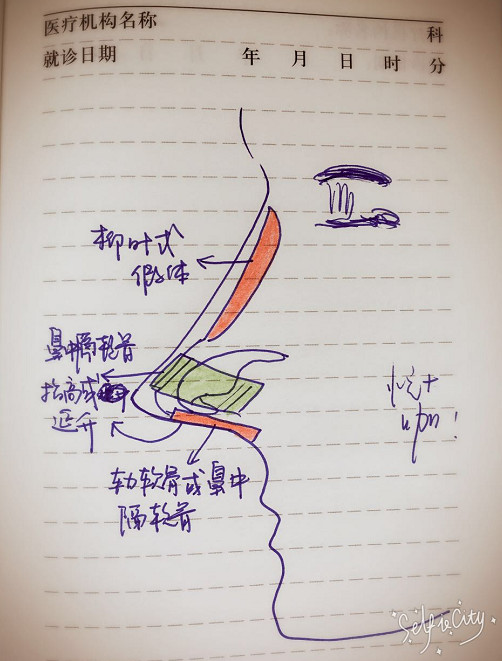 医疗机构名称 科
就诊日期 年 月 日 时 分
柳叶式
假体
鼻中隔软骨
抬高或
延升
软骨或鼻中
隔软骨
Selfie City